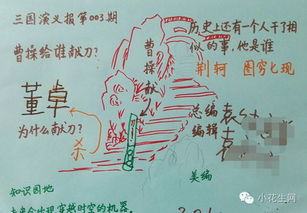 三国演义报第003期
曹操给谁献刀?
董卓
为什么献刀?
杀
曹操献
历史上还有一个人干了相
似的事,他是谁
荆轲 图穷匕现
总编 袁
编辑 袁
美编
知识园地
小花生网